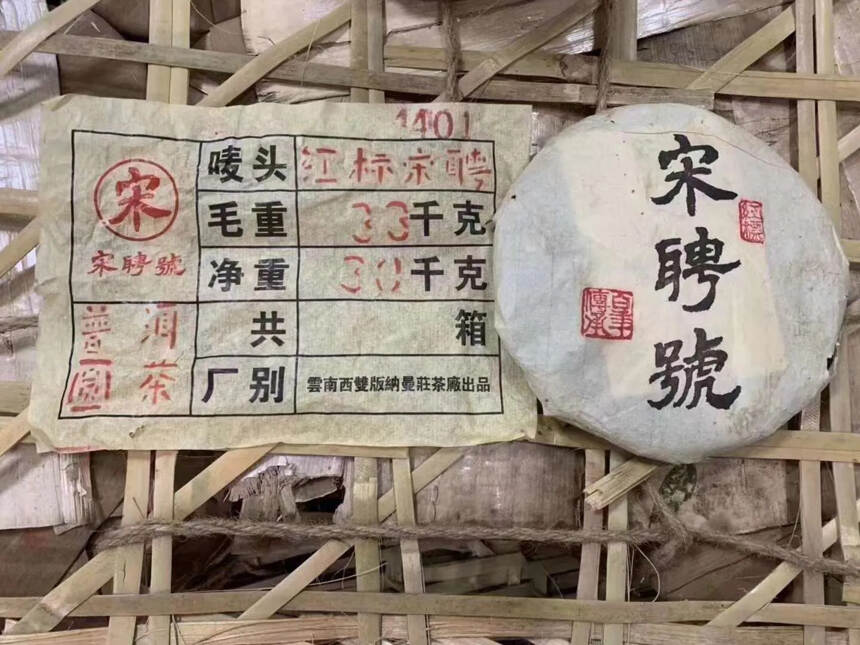 1401
唛头 红标宋聘
宋
毛重 33千克
宋聘號
净重 30千克
共 箱
普洱
圆茶
厂别 雲南西雙版納曼莊茶廠出品
宋聘號
红標
百年
傳承